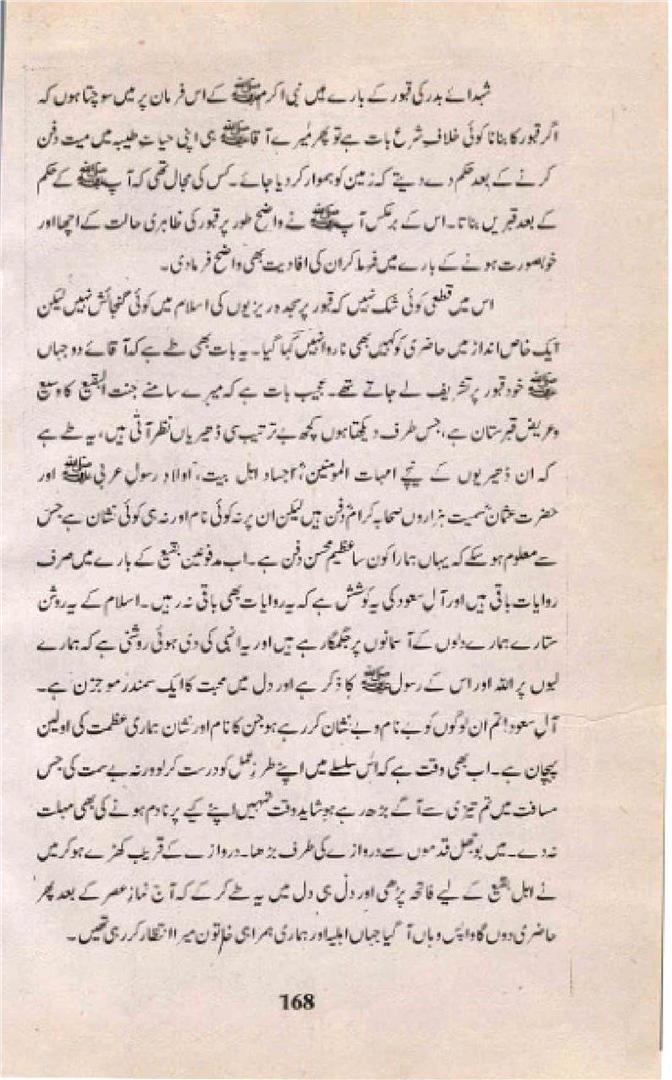 شہدائے بدر کی قبور کے بارے میں نبی اکرم ﷺ کے اس فرمان پر میں سوچتا ہوں کہ
اگر قبور کا بنانا کوئی خلافِ شرع بات ہے تو پھر میرے آقا ﷺ ہی اپنی حیاتِ طیبہ میں میت دفن
کرنے کے بعد حکم دے دیتے کہ زمین کو ہموار کر دیا جائے۔ کس کی مجال تھی کہ آپ ﷺ کے حکم
کے بعد قبریں بناتا۔ اس کے برعکس آپ ﷺ نے واضح طور پر قبور کی ظاہری حالت کے اچھا اور
خوبصورت ہونے کے بارے میں فرما کر ان کی افادیت بھی واضح فرما دی۔
اس میں قطعی کوئی شک نہیں کہ قبور پر سجدہ ریزیوں کی اسلام میں کوئی گنجائش نہیں لیکن
ایک خاص انداز میں حاضری کو کہیں بھی ناروا نہیں کہا گیا۔ یہ بات بھی طے ہے کہ آقائے دو جہاں
ﷺ خود قبور پر تشریف لے جاتے تھے۔ عجیب بات ہے کہ میرے سامنے جنت البقیع کا وسیع
و عریض قبرستان ہے، جس طرف دیکھتا ہوں کچھ بے ترتیب سی ڈھیریاں نظر آتی ہیں، یہ طے ہے
کہ ان ڈھیریوں کے نیچے امہات المومنینؓ، اجسادِ اہل بیت، اولادِ رسولِ عربی ﷺ اور
حضرت عثمانؓ سمیت ہزاروں صحابہ کرامؓ دفن ہیں لیکن ان پر نہ کوئی نام اور نہ ہی کوئی نشان ہے جس
سے معلوم ہو سکے کہ یہاں ہمارا کون سا عظیم محسن دفن ہے۔ اب مدفونین بقیع کے بارے میں صرف
روایات باقی ہیں اور آلِ سعود کی یہ کوشش ہے کہ یہ روایات بھی باقی نہ رہیں۔ اسلام کے یہ روشن
ستارے ہمارے دلوں کے آسمانوں پر جگمگا رہے ہیں اور یہ انہی کی دی ہوئی روشنی ہے کہ ہمارے
لبوں پر اللہ اور اس کے رسول ﷺ کا ذکر ہے اور دل میں محبت کا ایک سمندر موجزن ہے۔
آلِ سعود! تم ان لوگوں کو بے نام و بے نشان کر رہے ہو جن کا نام اور نشان ہماری عظمت کی اولین
پہچان ہے۔ اب بھی وقت ہے کہ اس سلسلے میں اپنے طرزِ عمل کو درست کر لو ورنہ بے سمت کی جس
مسافت میں تم تیزی سے آگے بڑھ رہے ہو شاید وقت تمہیں اپنے کیے پر نادم ہونے کی بھی مہلت
نہ دے۔ میں بوجھل قدموں سے دروازے کی طرف بڑھا۔ دروازے کے قریب کھڑے ہو کر میں
نے اہل بقیع کے لیے فاتحہ پڑھی اور دل ہی دل میں یہ طے کر کے کہ آج نمازِ عصر کے بعد پھر
حاضری دوں گا واپس وہاں آ گیا جہاں اہلیہ اور ہماری ہمراہی خاتون میرا انتظار کر رہی تھیں۔
168